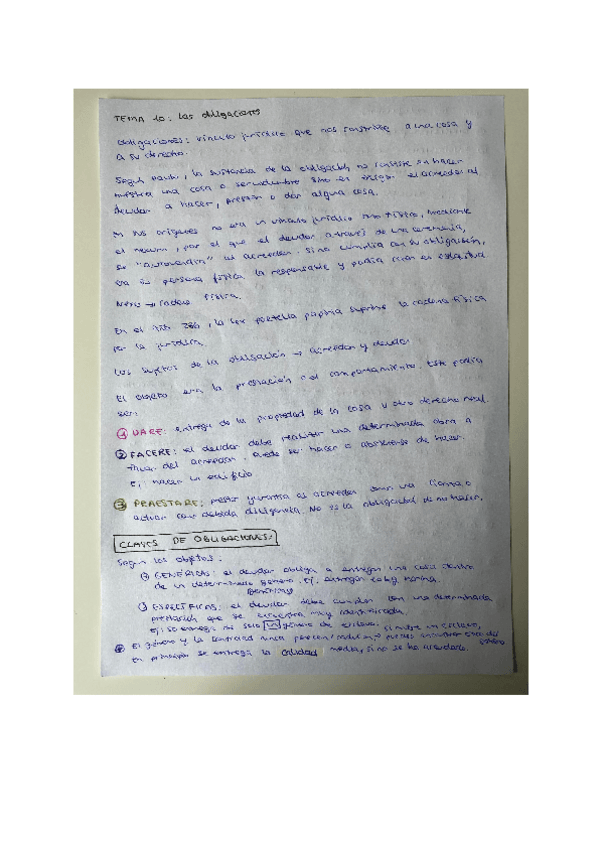 TEMA 10: Las obligaciones
Obligaciones: vínculo jurídico que nos constriñe a una cosa y
a su derecho.
Según Paulo, la sustancia de la obligación no consiste en hacer
nuestra una cosa o servidumbre sino en exigir el acreedor al
deudor a hacer, prestar o dar alguna cosa.
En sus orígenes no era un vínculo jurídico sino físico, mediante
el nexum, por el que el deudor a través de una ceremonia,
se "autovendía" al acreedor. Si no cumplía con su obligación,
era su persona física la responsable y podía caer en esclavitud
Nexo → cadena física.
En el 326 , la Lex Poetelia Papiria suprime la cadena física
por la jurídica.
Los sujetos de la obligación → acreedor y deudor
El objeto era la prestación o el comportamiento. Este podía
ser:
1 DARE: entrega de la propiedad de la cosa u otro derecho real.
2 FACERE: el deudor debe realizar una determinada obra a
favor del acreedor. Puede ser: hacer o abstenerse de hacer.
Ej: hacer un edificio
3 PRAESTARE: garantía al acreedor
actuar con debida diligencia. No es la obligación de no hacer.
CLASES DE OBLIGACIONES:
Según los objetos:
GENÉRICAS: el deudor obliga a entregar una cosa dentro
de un determinado género. Ej: entregar
ESPECÍFICAS: el deudor debe cumplir con una determinada
prestación que se encuentra muy identificada.
Ej: se entrega no solo un género de esclavo, si muere un esclavo,
El género y la cantidad nunca perecen
en principio se entrega la calidad media, si no se ha acordado.